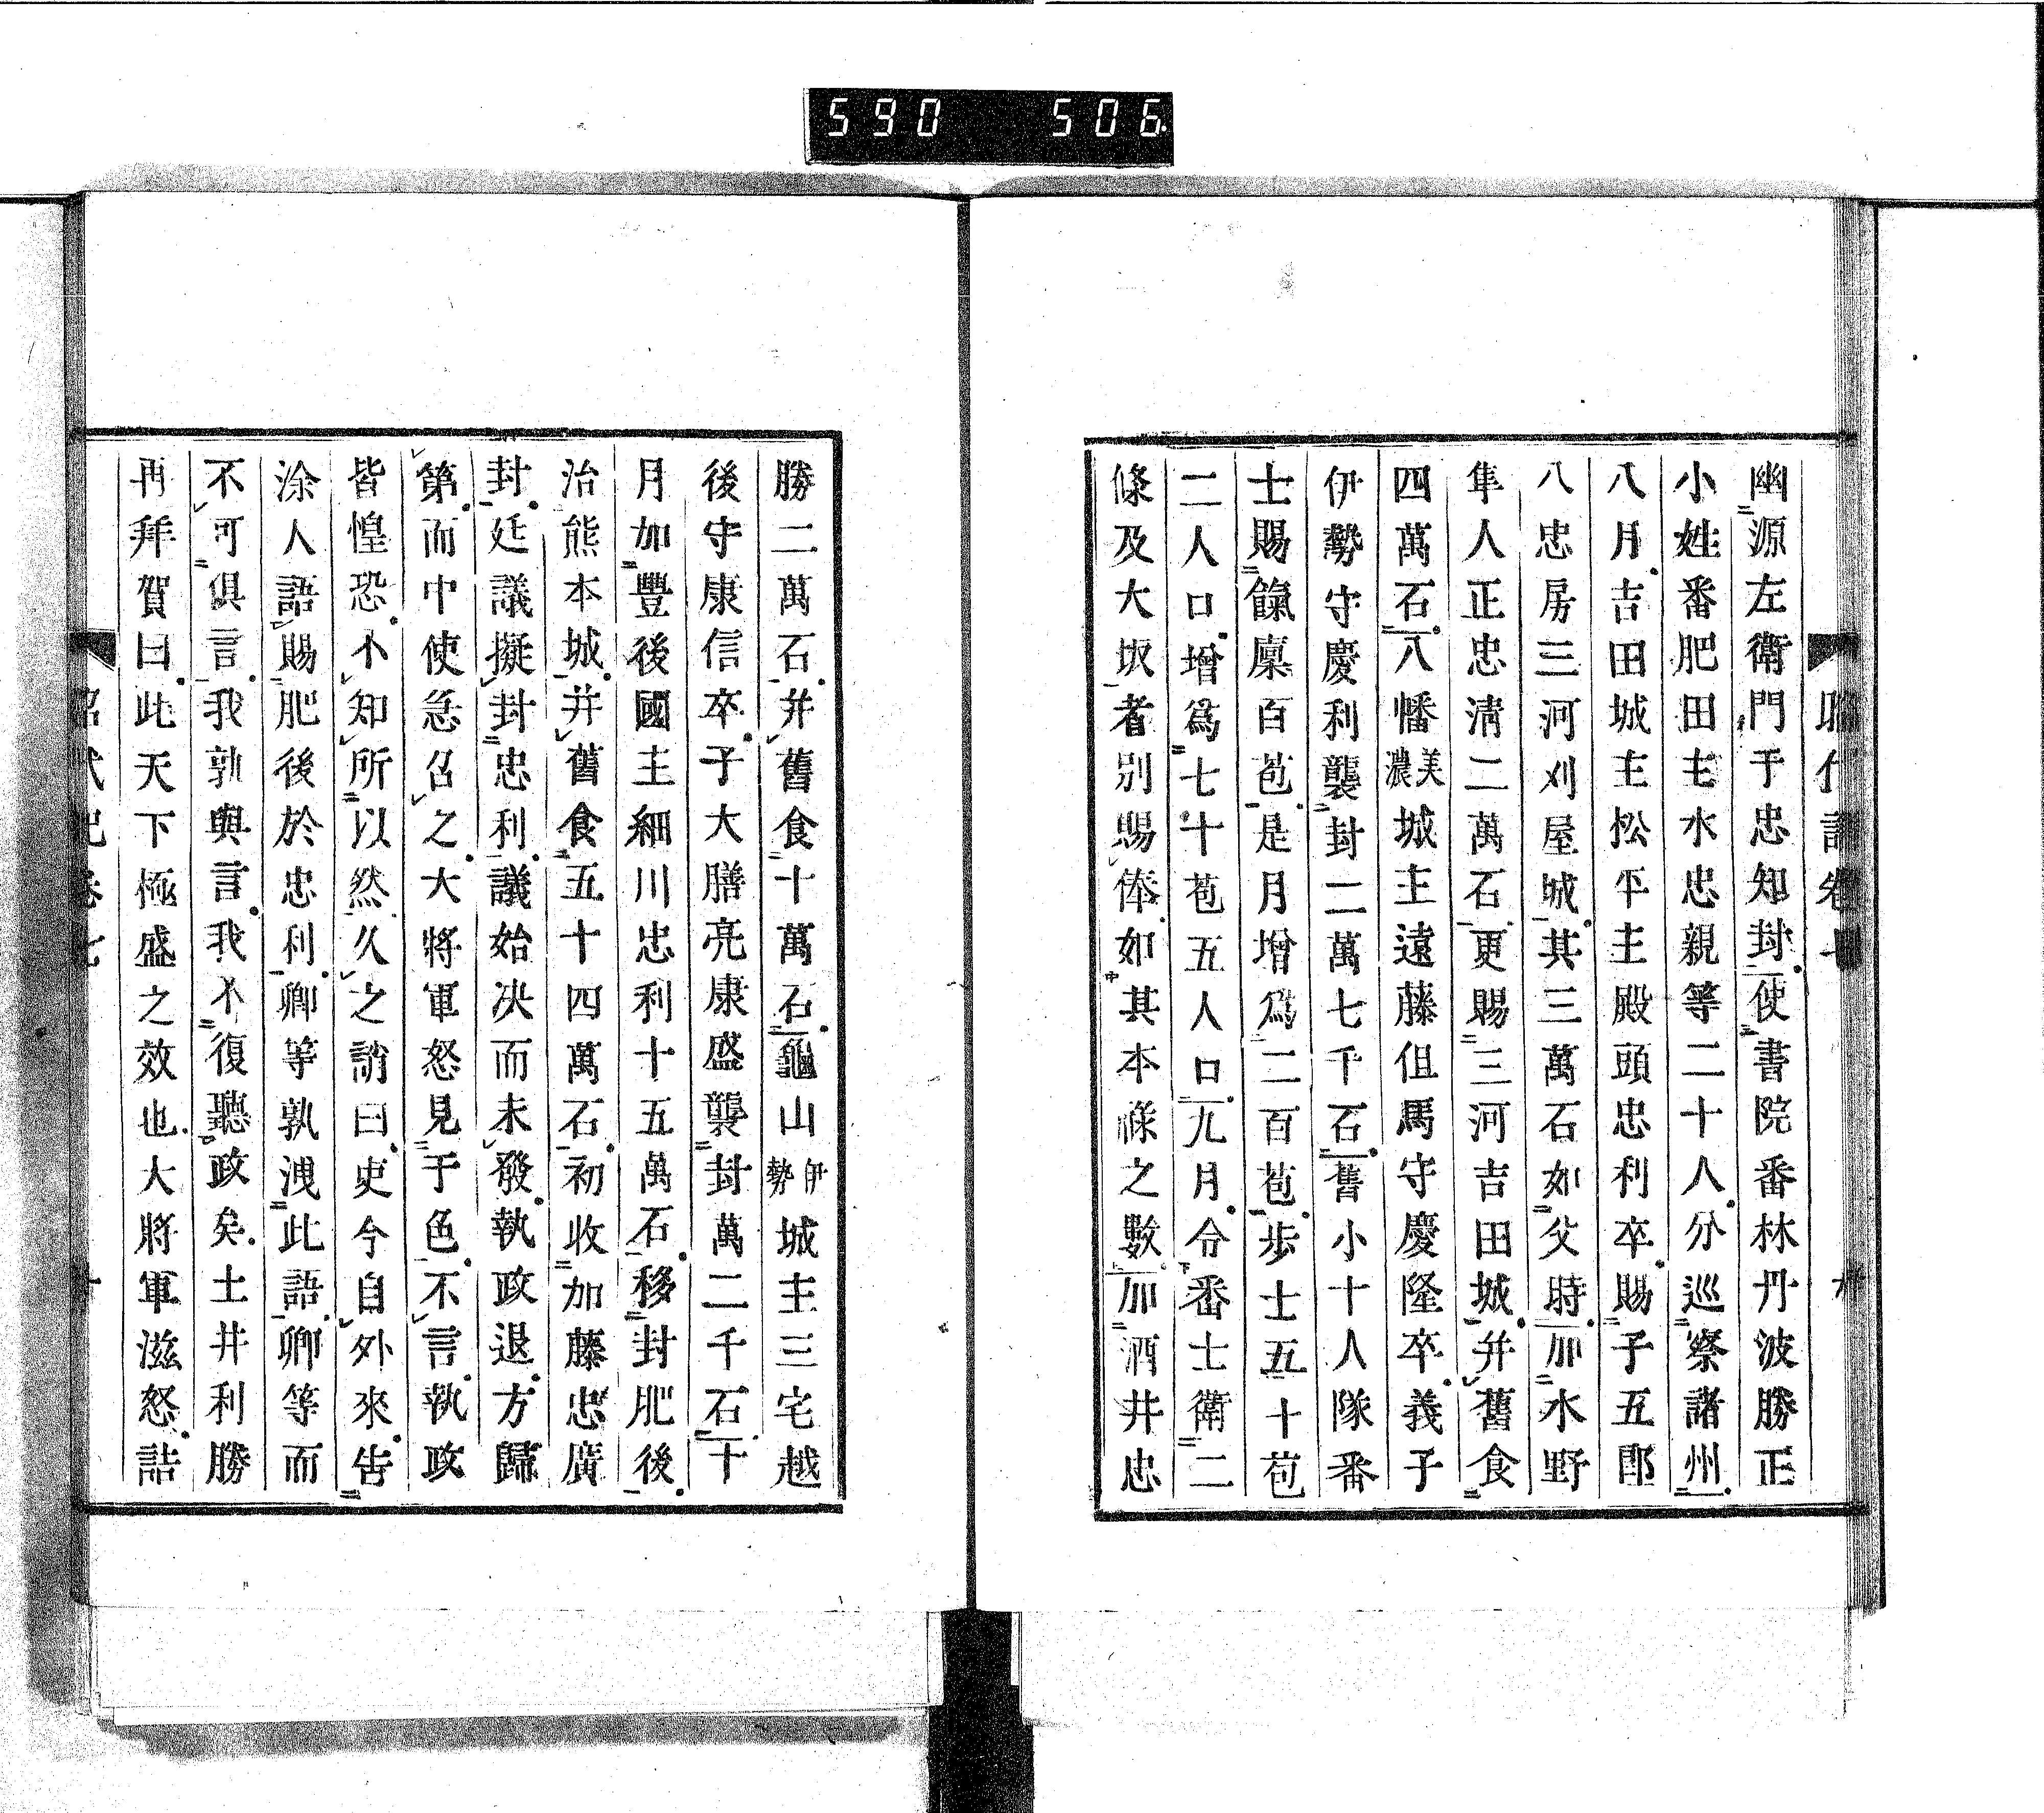 590 506
幽源左衛門于忠知封使書院番林丹波勝正
小姓番肥田主水忠親等二十人分巡察諸州
八月吉田城主松平主殿頭忠利卒賜子五郎
八忠房三河刈屋城其三萬石如父時加水野
隼人正忠淸二萬石更賜三河吉田城并舊食
四萬石八幡美濃城主遠藤伹馬守慶隆卒義子
伊勢守慶利襲封二萬七千石舊小十人隊番
士賜餼廩百苞是月增爲二百苞步士五十苞
二人口增爲七十苞五人口九月令番士衛二
條及大坂者別賜俸如其本祿之數加酒井忠
勝二萬石并舊食十萬石龜山伊勢城主三宅越
後守康信卒子大膳亮康盛襲封萬二千石十
月加豐後國主細川忠利十五萬石移封肥後
治熊本城并舊食五十四萬石初收加藤忠廣
封廷議擬封忠利議始决而未發執政退方歸
第而中使急召之大將軍怒見于色不言執政
皆惶恐不知所以然久之誚曰吏今自外來告
涂人語賜肥後於忠利卿等孰洩此語卿等而
不可俱言我孰與言我不復聽政矣土井利勝
再拜賀曰此天下極盛之效也大將軍滋怒詰